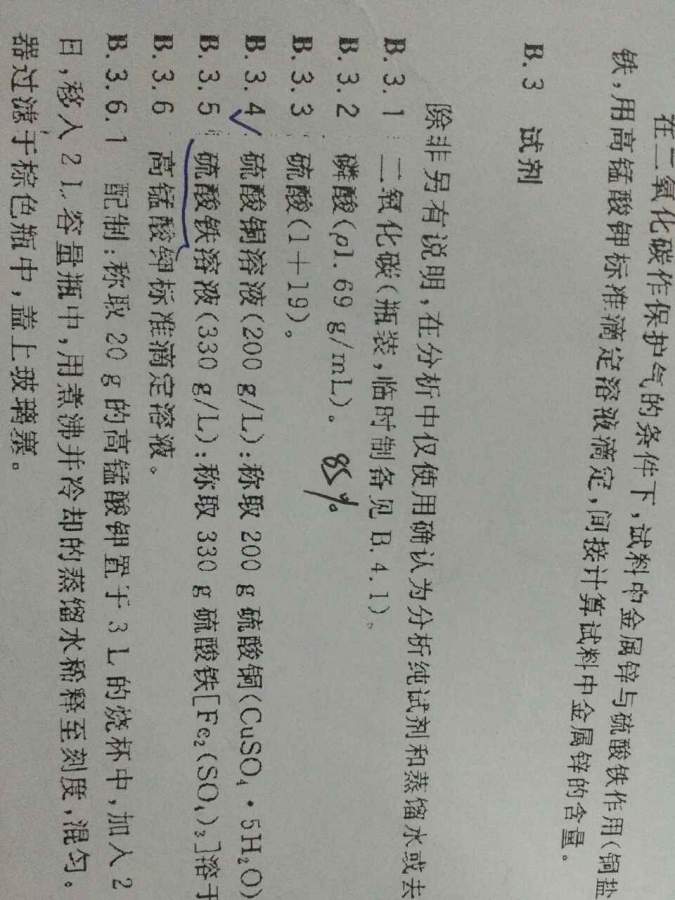 在二氧化碳作保护气的条件下,试料中金属锌与硫酸铁作用(铜盐
铁,用高锰酸钾标准滴定溶液滴定,间接计算试料中金属锌的含量。
B.3 试剂
除非另有说明,在分析中仅使用确认为分析纯试剂和蒸馏水或去
B.3.1 二氧化碳(瓶装,临时制备见B.4.1)。
B.3.2 磷酸(ρ1.69 g/mL)。 85%
B.3.3 硫酸(1+19)。
B.3.4 硫酸铜溶液(200 g/L):称取200 g硫酸铜(CuSO₄·5H₂O)
B.3.5 硫酸铁溶液(330 g/L):称取330 g硫酸铁[Fe₂(SO₄)₃]溶于
B.3.6 高锰酸钾标准滴定溶液。
B.3.6.1 配制:称取20 g的高锰酸钾置于3 L的烧杯中,加入2
日,移入2 L容量瓶中,用煮沸并冷却的蒸馏水稀释至刻度,混匀。
器过滤于棕色瓶中,盖上玻璃塞。